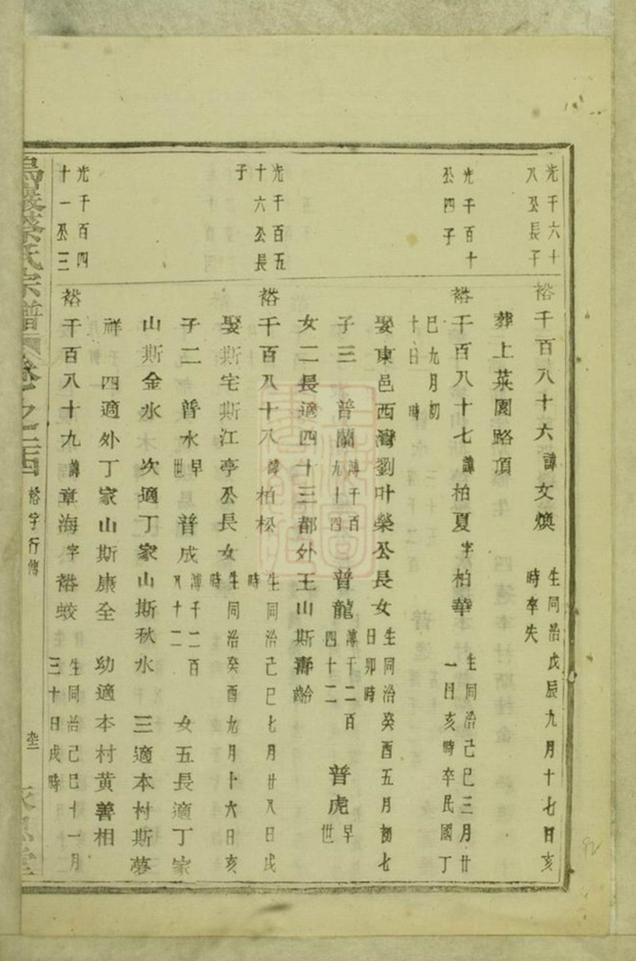 光千六十
八公長子
裕千百八十六諱文煥
生同治戊辰九月十七日亥
時卒失
葬上菜園路頂
光千百十
公四子
裕千百八十七諱柏夏字柏華
生同治己巳三月廿
一日亥時卒民國丁
巳九月初
十日時
娶東邑西灣劉叶榮公長女
生同治癸酉五月初七
日卯時
子三 普蘭
溥千百
九十四
普龍
溥千二百
四十二
普虎
早
世
女二長適四十三都外王山斯壽齡
光千百五
十六公長
子
裕千百八十八諱柏松
生同治己巳七月廿八日戌
時
娶斯宅斯江亭公長女
生同治癸酉九月十六日亥
時
子二 普水
早
世
普成
溥千二百
八十二
女五長適丁家
山斯金水 次適丁家山斯秋水 三適本村斯夢
祥 四適外丁家山斯康全 幼適本村黄善相
光千百四
十一公三
裕千百八十九諱章海字裕蛟
生同治己巳十一月
三十日戌時
蔡氏宗譜 卷之 裕字行傳